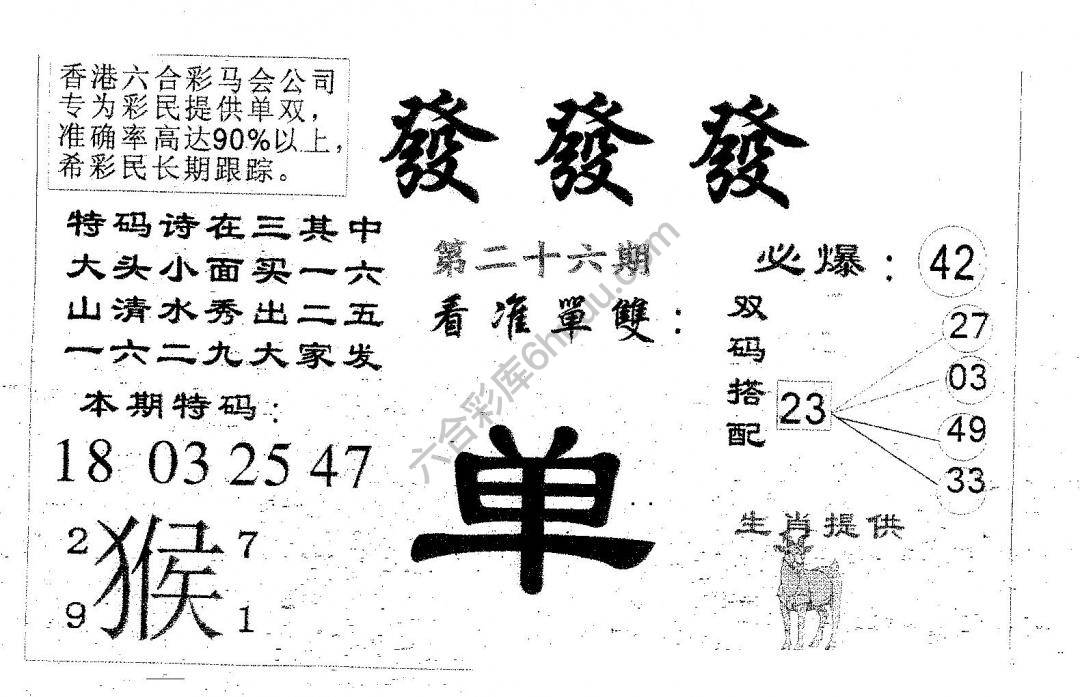 香港六合彩马会公司
专为彩民提供单双，
准确率高达90%以上，
希彩民长期跟踪。
發發發
特码诗在三其中
大头小面买一六
山清水秀出二五
一六二九大家发
第二十六期
看准單雙：
必爆：42
双码搭配
23
27
03
49
33
本期特码：
18 03 25 47
单
2 7
猴
9 1
生肖提供
六合彩库6hzdu.com